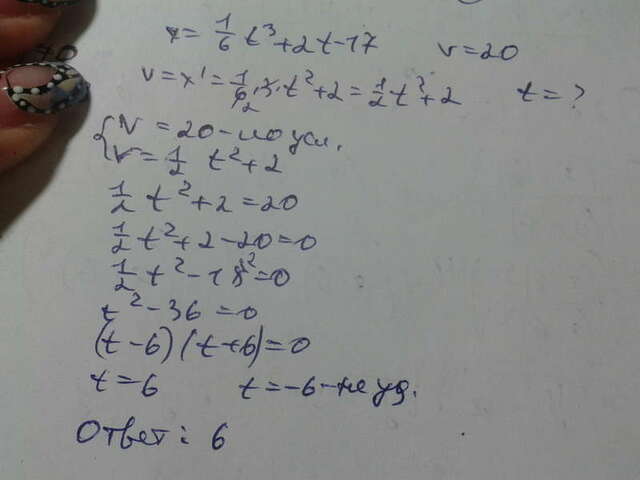 x = 1/6 t³ + 2t - 17 v = 20
v = x' = 1/6 · 3 · t² + 2 = 1/2 t² + 2 t = ?
{ v = 20 - по усл.
v = 1/2 t² + 2
1/2 t² + 2 = 20
1/2 t² + 2 - 20 = 0
1/2 t² - 18 = 0
t² - 36 = 0
(t - 6)(t + 6) = 0
t = 6 t = -6 - не уд.
Ответ: 6